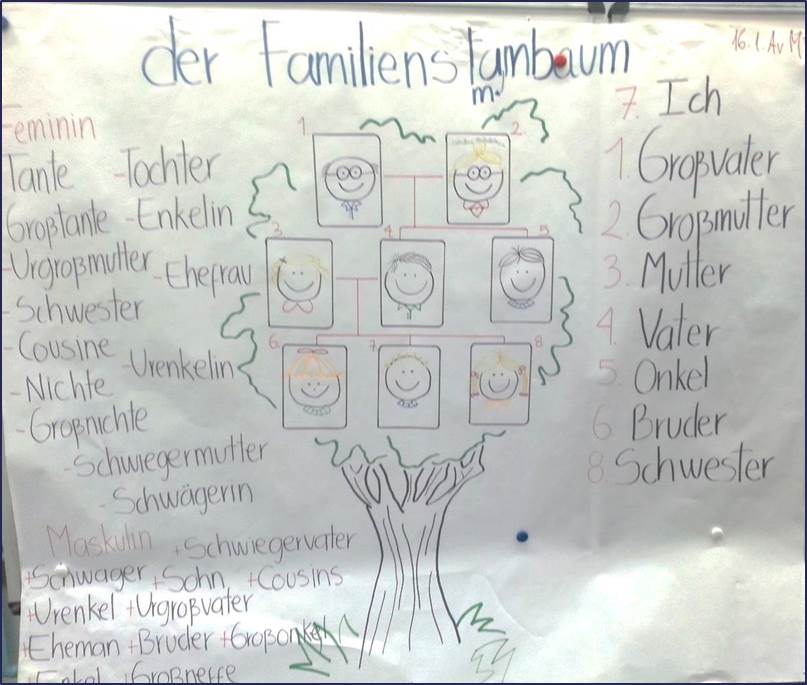 der Familienstambaum
m.
16.1. Av M
Feminin
Tante -Tochter
Großtante -Enkelin
-Urgroßmutter -Ehefrau
-Schwester
-Cousine
-Urenkelin
-Nichte
-Großnichte
-Schwiegermutter
-Schwägerin
Maskulin +Schwiegervater
+Schwager +Sohn +Cousins
+Urenkel +Urgroßvater
+Eheman +Bruder +Großonkel
+Enkel +Großneffe
1. 2.
3. 4. 5.
6. 7. 8
7. Ich
1. Großvater
2. Großmutter
3. Mutter
4. Vater
5. Onkel
6 Bruder
8. Schwester